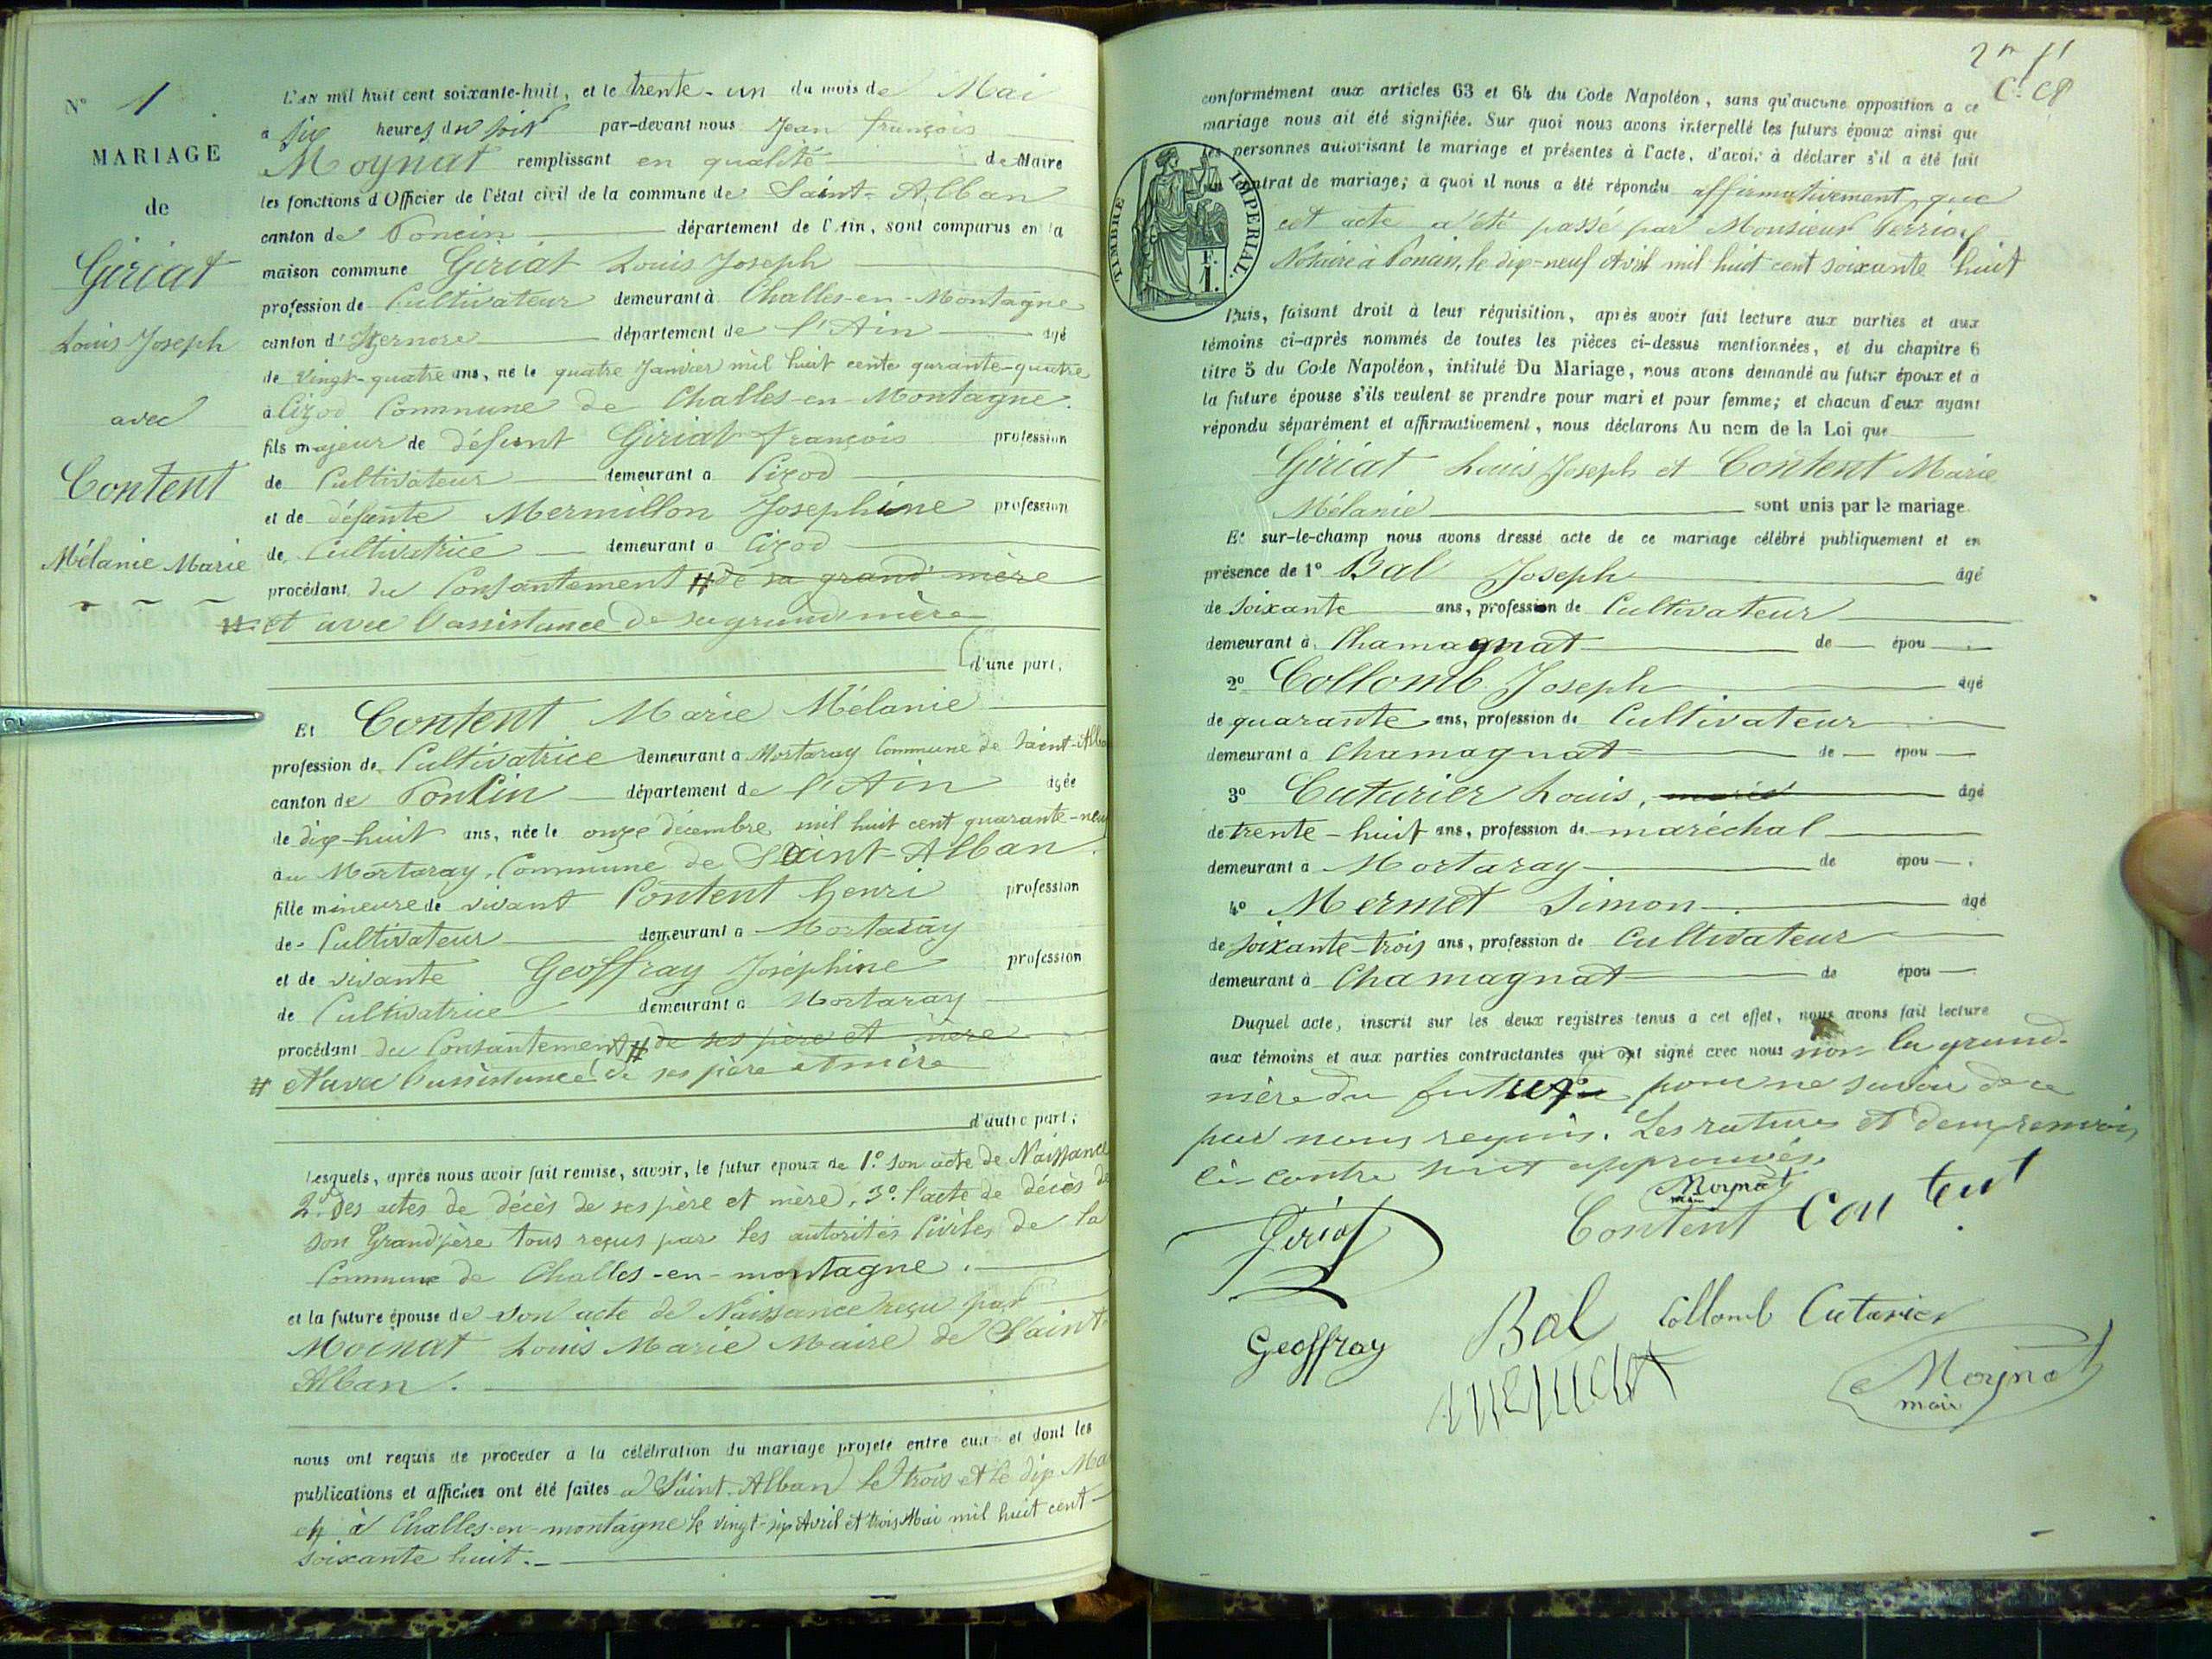 N° 1
MARIAGE
de
Giriat
Louis Joseph
avec
Content
Mélanie Marie
L'an mil huit cent soixante-huit, et le trente-un du mois de Mai
à six heures du soir par-devant nous Jean françois
Moynat remplissant en qualité de Maire
les fonctions d'Officier de l'état civil de la commune de Saint-Alban
canton de Poncin département de l'Ain, sont comparus en la
maison commune Giriat Louis Joseph
profession de Cultivateur demeurant à Challes-en-Montagne
canton d'Izernore département de l'Ain âgé
de vingt-quatre ans, né le quatre Janvier mil huit cente qurante-quatre
à Cizod Commune de Challes-en-Montagne.
fils majeur de défunt Giriat françois profession
de Cultivateur demeurant à Cizod
et de défunte Mermillon Josephine profession
de Cultivatrice demeurant à Cizod
procédant du Consantement # de sa grand'mère
# et avec l'assistance de sa grand'mère
d'une part,
Et Content Marie Mélanie
profession de Cultivatrice demeurant à Mortaray Commune de Saint-Alban
canton de Poncin département de l'Ain âgée
de dix-huit ans, née le onze décembre mil huit cent quarante-neuf
au Mortaray, Commune de Saint-Alban.
fille mineure de vivant Content henri profession
de Cultivateur demeurant à Mortaray
et de vivante Geoffray Joséphine profession
de Cultivatrice demeurant à Mortaray
procédant du Consantement # de ses père et mère
# et avec l'assistance de ses père et mère
d'autre part;
Lesquels, après nous avoir fait remise, savoir, le futur époux de 1.º son acte de Naissance
2.º Des actes de décès de ses père et mère, 3.º l'acte de décès de
son Grand'père tous reçus par les autorités Civiles de la
Commune de Challes-en-montagne.
et la future épouse de son acte de Naissance reçu par
Moinat Louis Marie Maire de Saint-
Alban.
nous ont requis de procéder à la célébration du mariage projeté entre eux et dont les
publications et affiches ont été faites à Saint-Alban le trois et le dix Mai
et à Challes-en-montagne le vingt-six Avril et trois Mai mil huit cent
soixante huit.
conformément aux articles 63 et 64 du Code Napoléon, sans qu'aucune opposition a ce
mariage nous ait été signifiée. Sur quoi nous avons interpellé les futurs époux ainsi que
les personnes autorisant le mariage et présentes à l'acte, d'avoir à déclarer s'il a été fait
un contrat de mariage; à quoi il nous a été répondu affirmativement, que
cet acte a été passé par Monsieur Perrio
Notaire à Poncin, le dix-neuf Avril mil huit cent soixante huit
TIMBRE IMPERIAL.
F.
1.
Puis, faisant droit à leur réquisition, après avoir fait lecture aux parties et aux
témoins ci-après nommés de toutes les pièces ci-dessus mentionnées, et du chapitre 6
titre 5 du Code Napoléon, intitulé Du Mariage, nous avons demandé au futur époux et à
la future épouse s'ils veulent se prendre pour mari et pour femme; et chacun d'eux ayant
répondu séparément et affirmativement, nous déclarons Au nom de la Loi que
Giriat Louis Joseph et Content Marie
Mélanie sont unis par le mariage.
Et sur-le-champ nous avons dressé acte de ce mariage célébré publiquement et en
présence de 1° Bal Joseph âgé
de soixante ans, profession de Cultivateur
demeurant à Chamagnat de épou
2° Collomb Joseph âgé
de quarante ans, profession de Cultivateur
demeurant à Chamagnat de épou
3° Cuturier Louis, âgé
de trente-huit ans, profession de maréchal
demeurant à Mortaray de épou
4° Mermet Simon âgé
de soixante-trois ans, profession de Cultivateur
demeurant à Chamagnat de épou
Duquel acte, inscrit sur les deux registres tenus à cet effet, nous avons fait lecture
aux témoins et aux parties contractantes qui ont signé avec nous non la grand-
mère du futur pour ne savoir de ce
par nous requis. Les ratures et deux renvois
ci-contre sont approuvés.
Moynat
Giriat Content Content
Geoffray Bal Collomb Cuturier
mermet
Moynat
maire